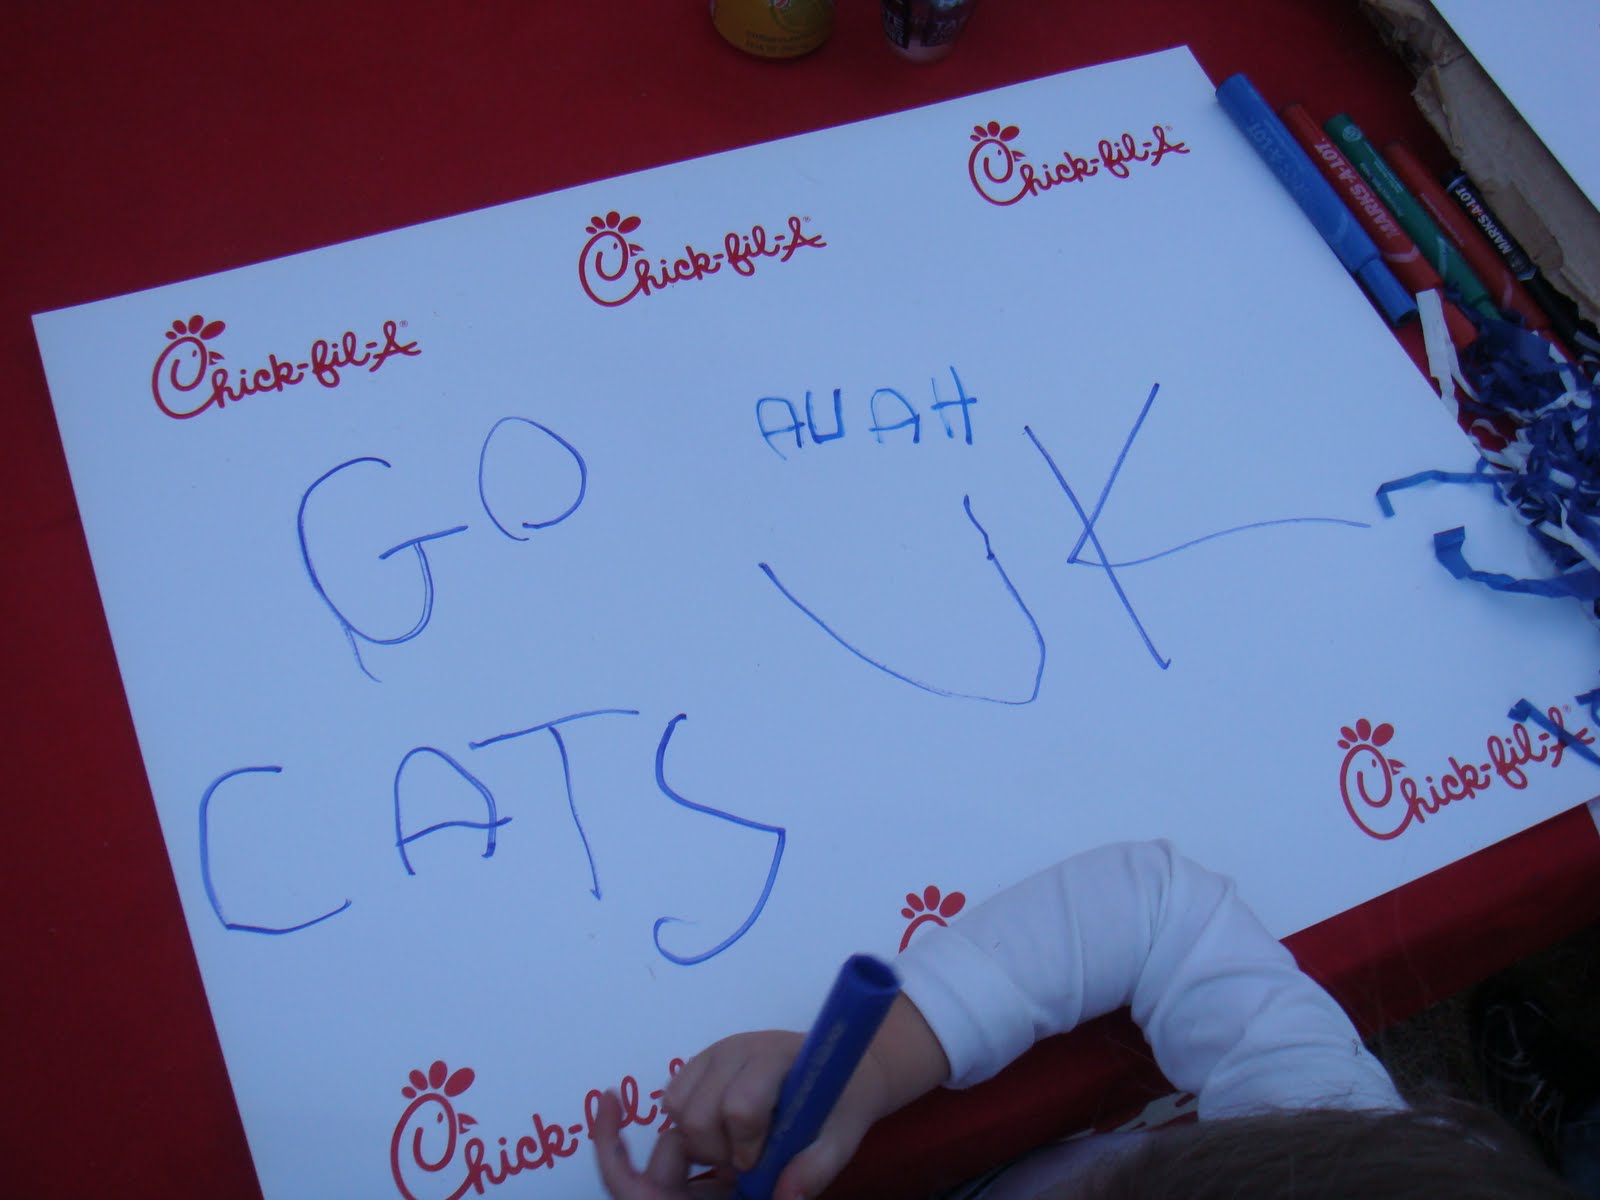 Chick-fil-A®
Chick-fil-A®
Chick-fil-A®
MARKS-A-LOT
MARKS-A-LOT
GO
AUAH
UK
CATS
Chick-fil-A®
Chick-fil-A